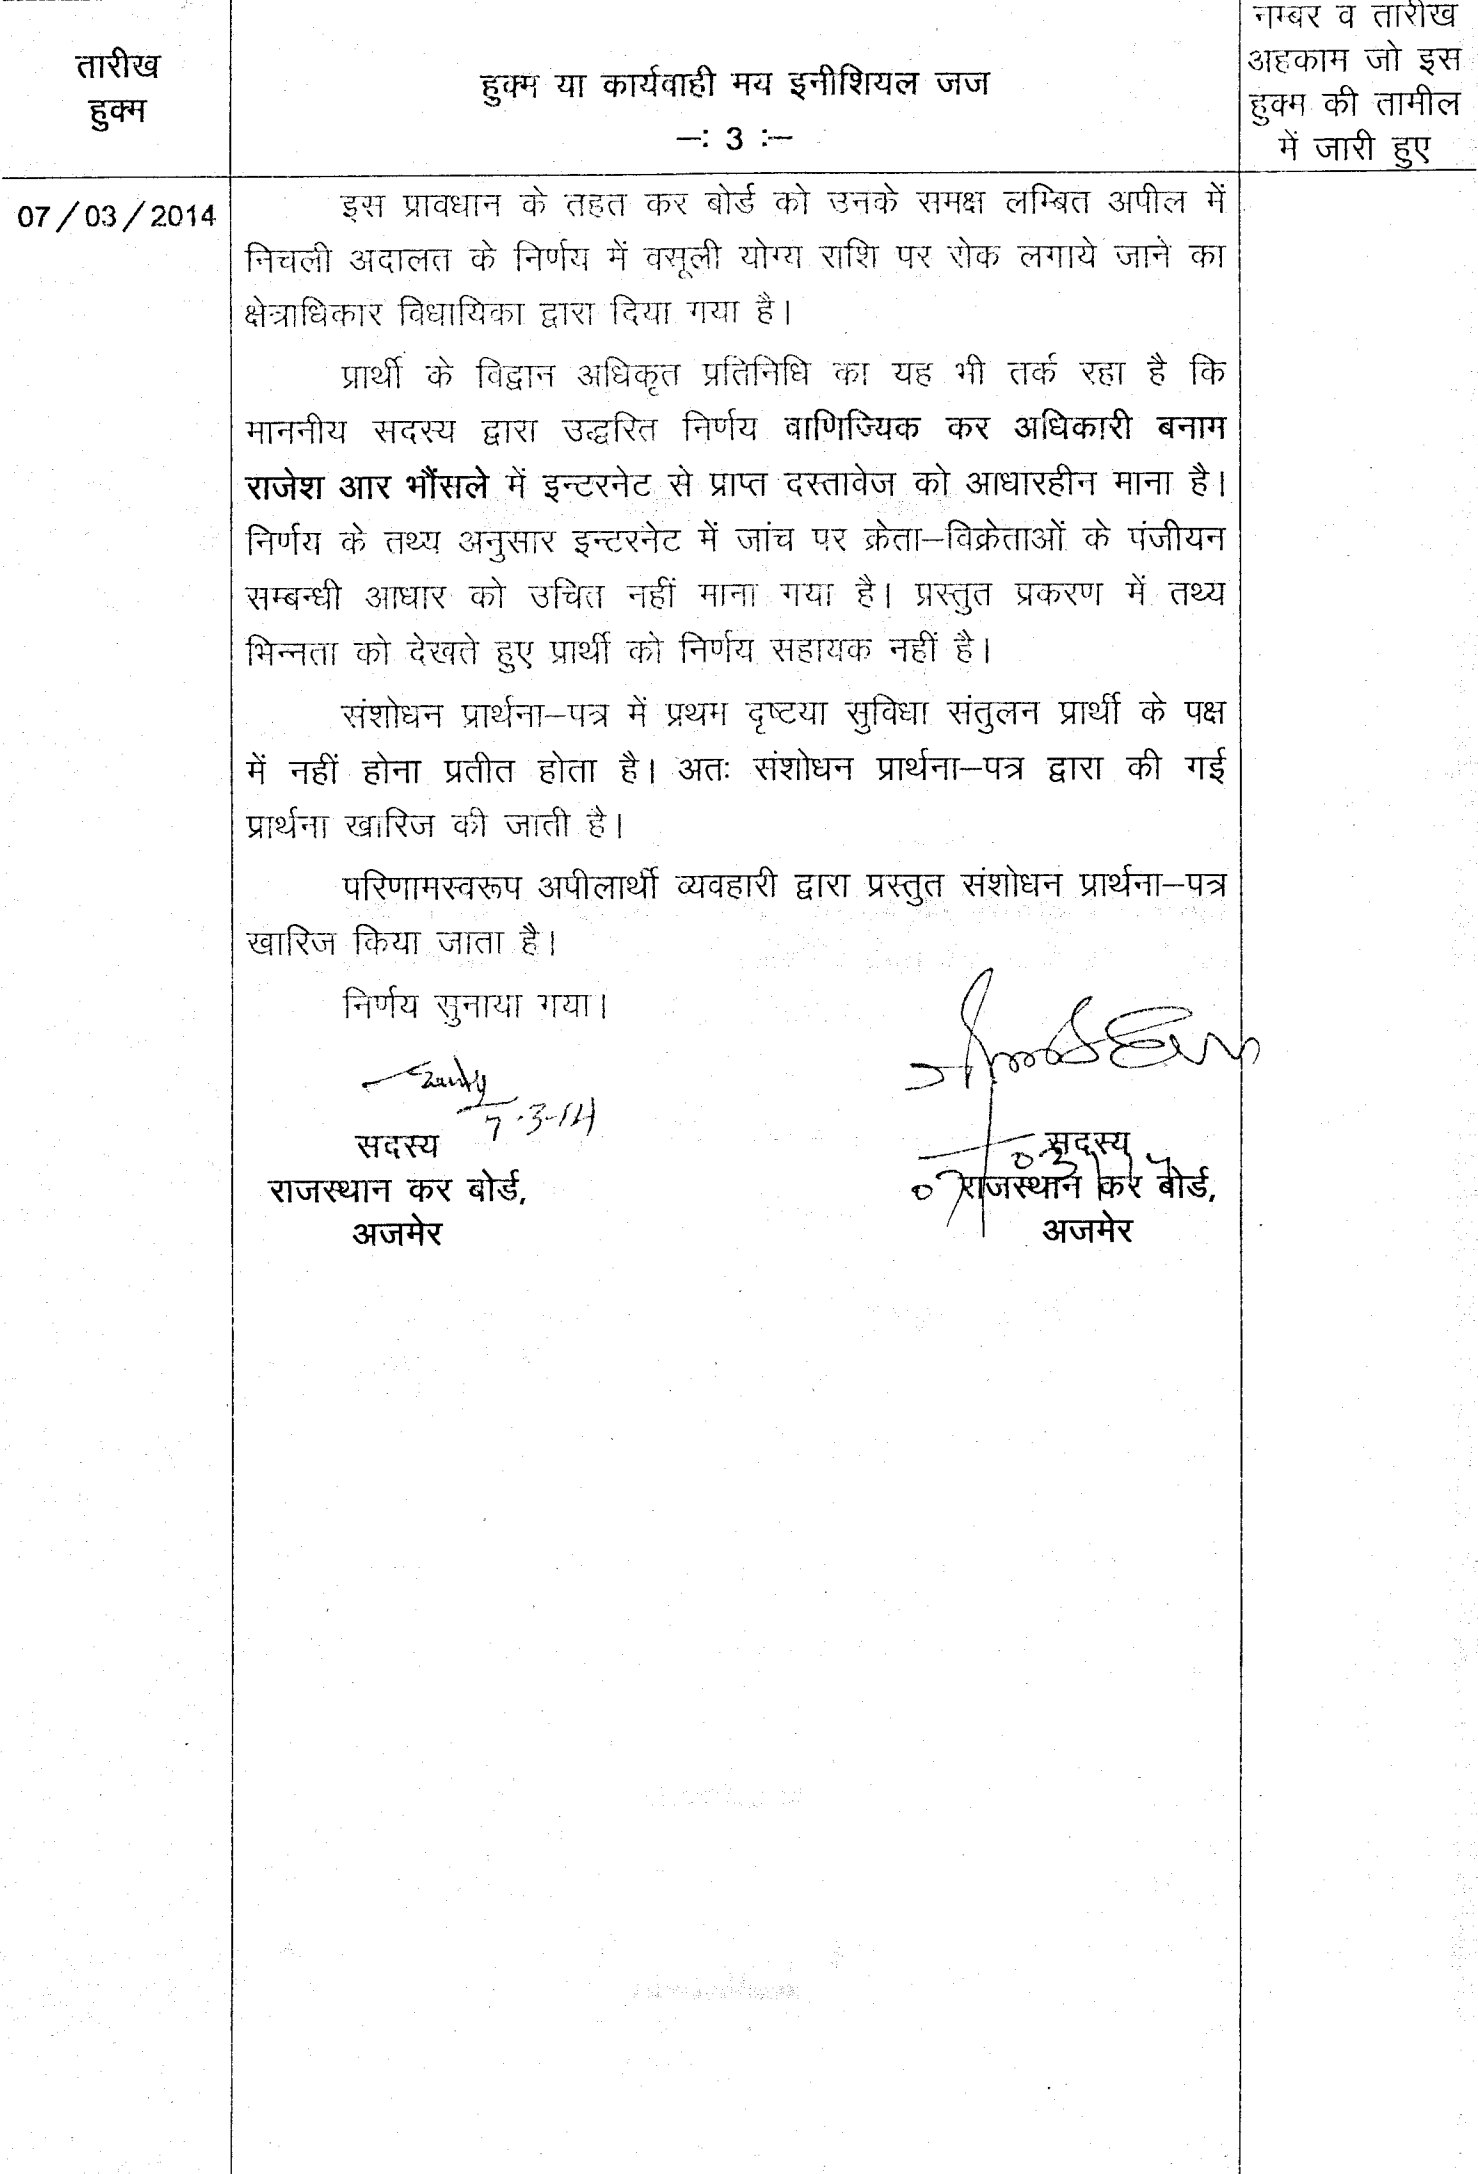 तारीख
हुक्म
हुक्म या कार्यवाही मय इनीशियल जज
–: 3 :–
नम्बर व तारीख
अहकाम जो इस
हुक्म की तामील
में जारी हुए
07/03/2014
इस प्रावधान के तहत कर बोर्ड को उनके समक्ष लम्बित अपील में
निचली अदालत के निर्णय में वसूली योग्य राशि पर रोक लगाये जाने का
क्षेत्राधिकार विधायिका द्वारा दिया गया है।
प्रार्थी के विद्वान अधिकृत प्रतिनिधि का यह भी तर्क रहा है कि
माननीय सदस्य द्वारा उद्धरित निर्णय वाणिज्यिक कर अधिकारी बनाम
राजेश आर भौंसले में इन्टरनेट से प्राप्त दस्तावेज को आधारहीन माना है।
निर्णय के तथ्य अनुसार इन्टरनेट में जांच पर क्रेता–विक्रेताओं के पंजीयन
सम्बन्धी आधार को उचित नहीं माना गया है। प्रस्तुत प्रकरण में तथ्य
भिन्नता को देखते हुए प्रार्थी को निर्णय सहायक नहीं है।
संशोधन प्रार्थना–पत्र में प्रथम दृष्टया सुविधा संतुलन प्रार्थी के पक्ष
में नहीं होना प्रतीत होता है। अतः संशोधन प्रार्थना–पत्र द्वारा की गई
प्रार्थना खारिज की जाती है।
परिणामस्वरूप अपीलार्थी व्यवहारी द्वारा प्रस्तुत संशोधन प्रार्थना–पत्र
खारिज किया जाता है।
निर्णय सुनाया गया।
7·3-14
सदस्य
राजस्थान कर बोर्ड,
अजमेर
सदस्य
राजस्थान कर बोर्ड,
अजमेर